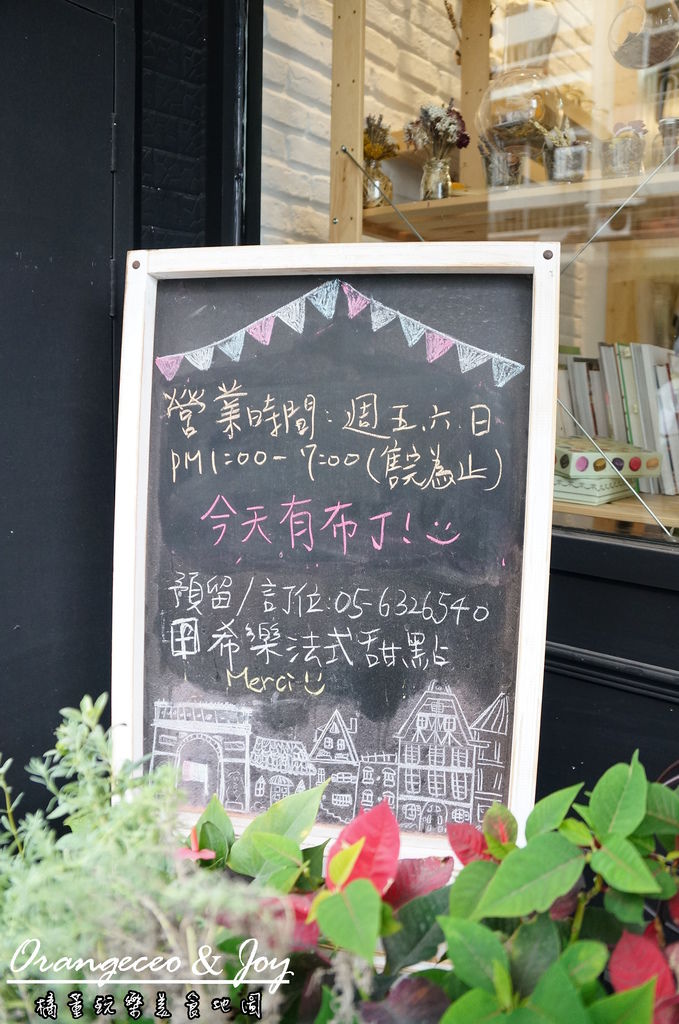 營業時間:週五.六.日
PM1:00-7:00(售完為止)
今天有布丁!
預留/訂位:05-6326540
希樂法式甜點
Merci
Orangeceo & Joy
橘童玩樂美食地圖